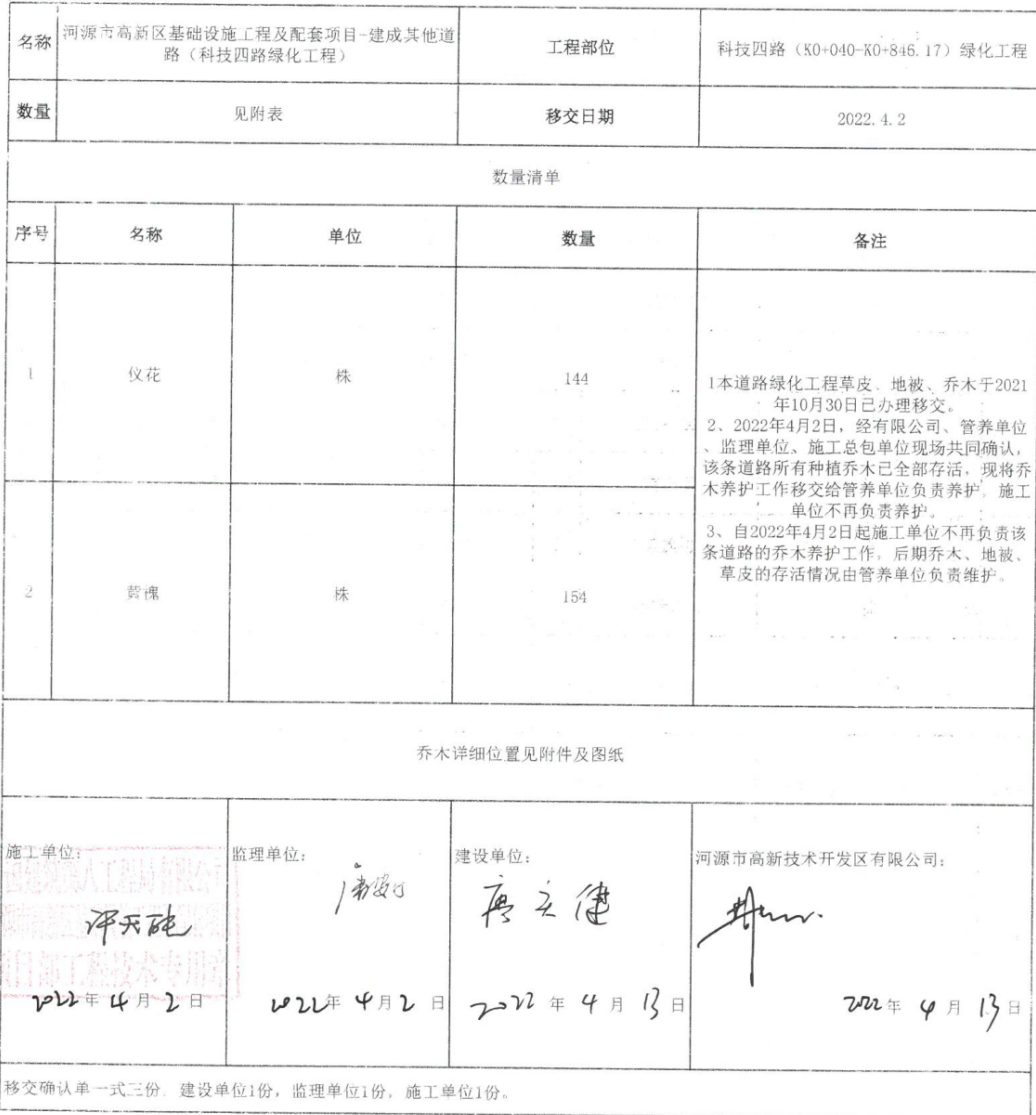 名称
河源市高新区基础设施工程及配套项目-建成其他道
路（科技四路绿化工程）
工程部位
科技四路（K0+040-K0+846.17）绿化工程
数量
见附表
移交日期
2022.4.2
数量清单
序号
名称
单位
数量
备注
1
仪花
株
144
1本道路绿化工程草皮、地被、乔木于2021
年10月30日已办理移交。
2、2022年4月2日，经有限公司、管养单位
、监理单位、施工总包单位现场共同确认，
该条道路所有种植乔木已全部存活，现将乔
木养护工作移交给管养单位负责养护，施工
单位不再负责养护。
3、自2022年4月2日起施工单位不再负责该
条道路的乔木养护工作。后期乔木、地被、
草皮的存活情况由管养单位负责维护。
2
株
154
乔木详细位置见附件及图纸
施工单位：
2022年4月2日
监理单位：
2022年4月2日
建设单位：
2022年4月13日
河源市高新技术开发区有限公司：
2022年4月13日
移交确认单一式三份，建设单位1份，监理单位1份，施工单位1份。